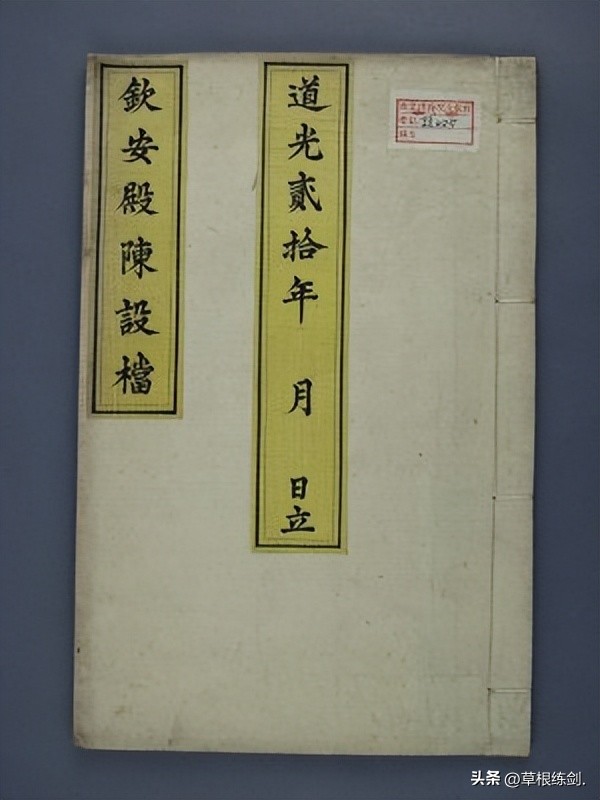 道光貳拾年 月 日立
欽安殿陳設檔
头条 @草根练剑.